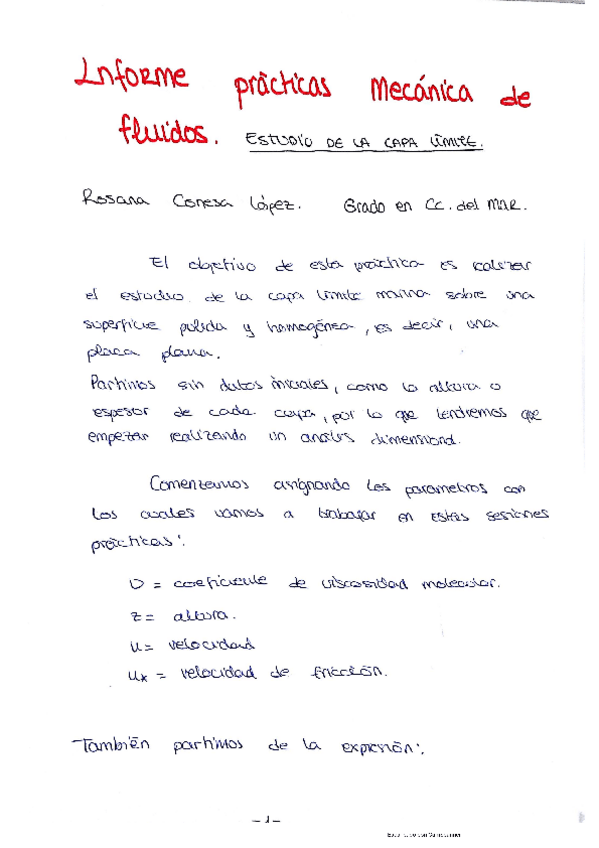 Informe prácticas Mecánica de
fluidos. ESTUDIO DE LA CAPA LÍMITE.
Rosana Conesa López. Grado en CC. del MAR.
El objetivo de esta práctica es realizar
el estudio de la capa límite marina sobre una
superficie pulida y homogénea, es decir, una
placa plana.
Partimos sin datos iniciales, como la altura o
espesor de cada capa, por lo que tendremos que
empezar realizando un análisis dimensional.
Comenzamos asignando los parametros con
los cuales vamos a trabajar en estas sesiones
prácticas:
υ = coeficiente de viscosidad molecular.
z = altura.
u = velocidad
u* = velocidad de fricción.
También partimos de la expresión:
- 1 -
Escaneado con CamScanner